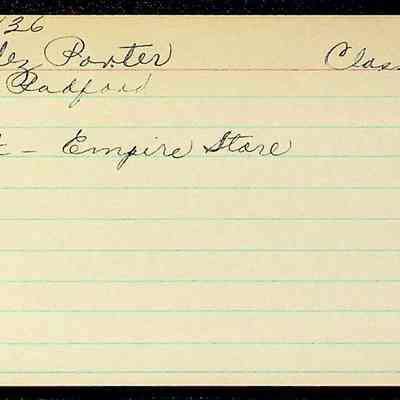 136
lez Porter Class
Radford
t - Empire Store